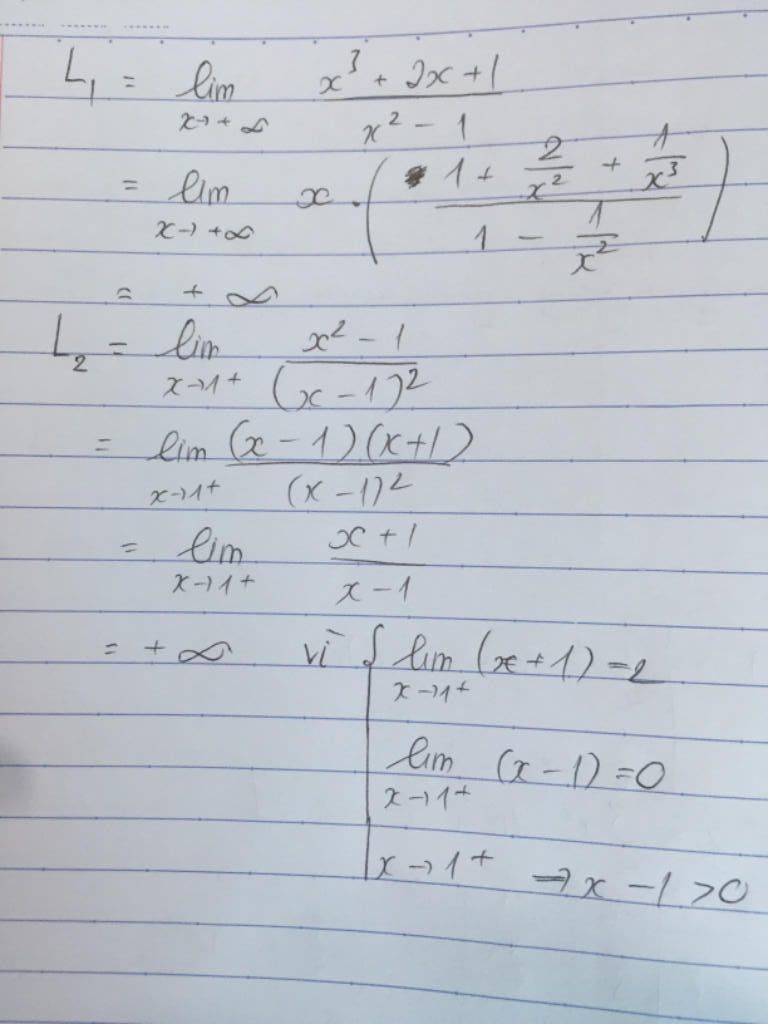 L₁ = lim_{x→+∞} (x³ + 2x + 1)/(x² - 1)
= lim_{x→+∞} x · ((1 + 2/x² + 1/x³)/(1 - 1/x²))
= +∞
L₂ = lim_{x→1⁺} (x² - 1)/(x - 1)²
= lim_{x→1⁺} (x - 1)(x + 1)/(x - 1)²
= lim_{x→1⁺} (x + 1)/(x - 1)
= +∞ vì { lim_{x→1⁺} (x + 1) = 2
lim_{x→1⁺} (x - 1) = 0
x→1⁺ ⇒ x - 1 > 0